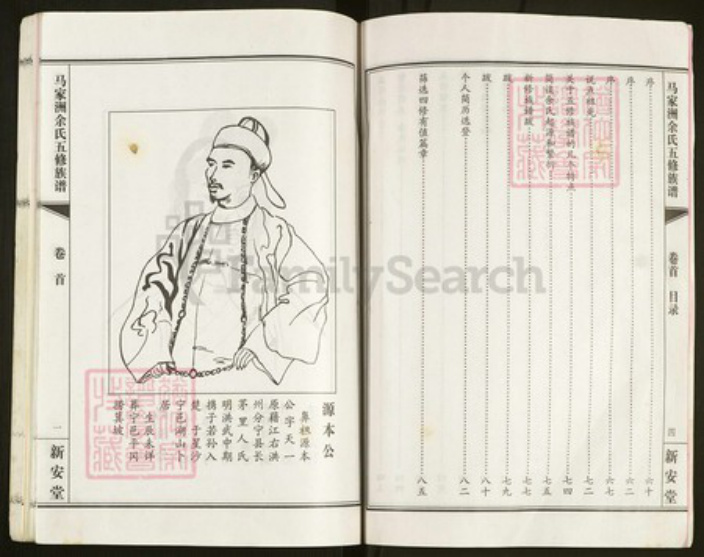 马家洲余氏五修族谱
卷首 目录
四
新安堂
序 六十
序 六二
序 六七
说点祖先 七二
关于五修族谱的几个特点 七四
简谈余氏起源和繁衍 七五
新修族谱跋 七七
跋 七九
跋 八十
个人简历选登 八二
筛选四修有值篇章 八五
源本公
鼻祖源本
公字天一
原籍江右洪
州分宁县长
茅里人氏
明洪武中期
携子若孙入
楚于星沙
宁邑湖山卜
居
生辰未详
葬宁邑平冈
马家洲余氏五修族谱
卷首
一
新安堂
FamilySearch